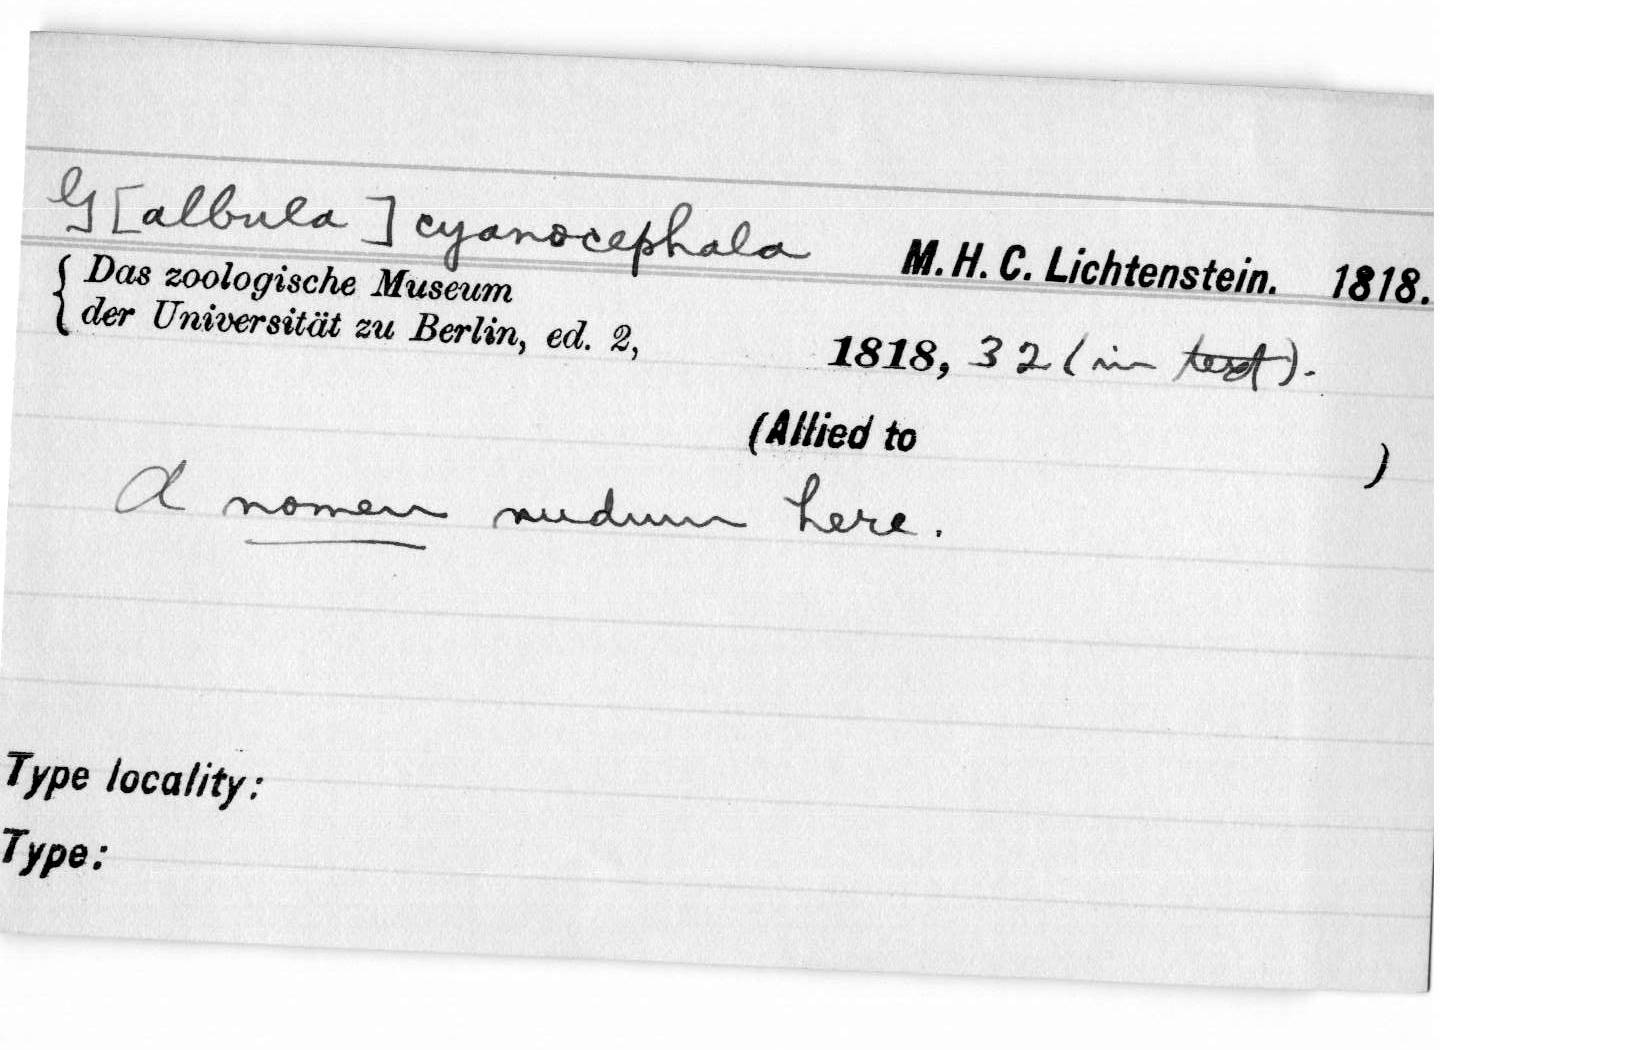 G[albula] cyanocephala M. H. C. Lichtenstein. 1818.
{ Das zoologische Museum
der Universität zu Berlin, ed. 2, 1818, 32 (in text).
(Allied to )
A nomen nudum here.
Type locality:
Type: